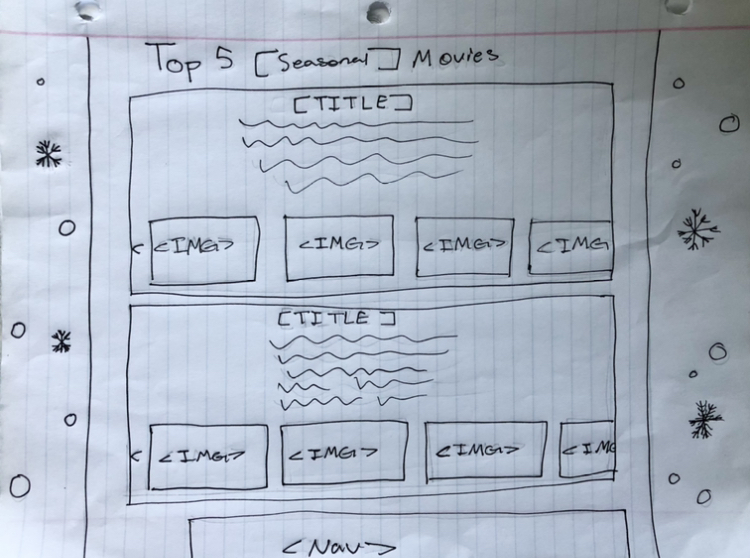 Top 5 [Seasonal] Movies
[TITLE]
< <IMG> <IMG> <IMG> <IMG
[TITLE]
< <IMG> <IMG> <IMG> <IMG
<Nav>